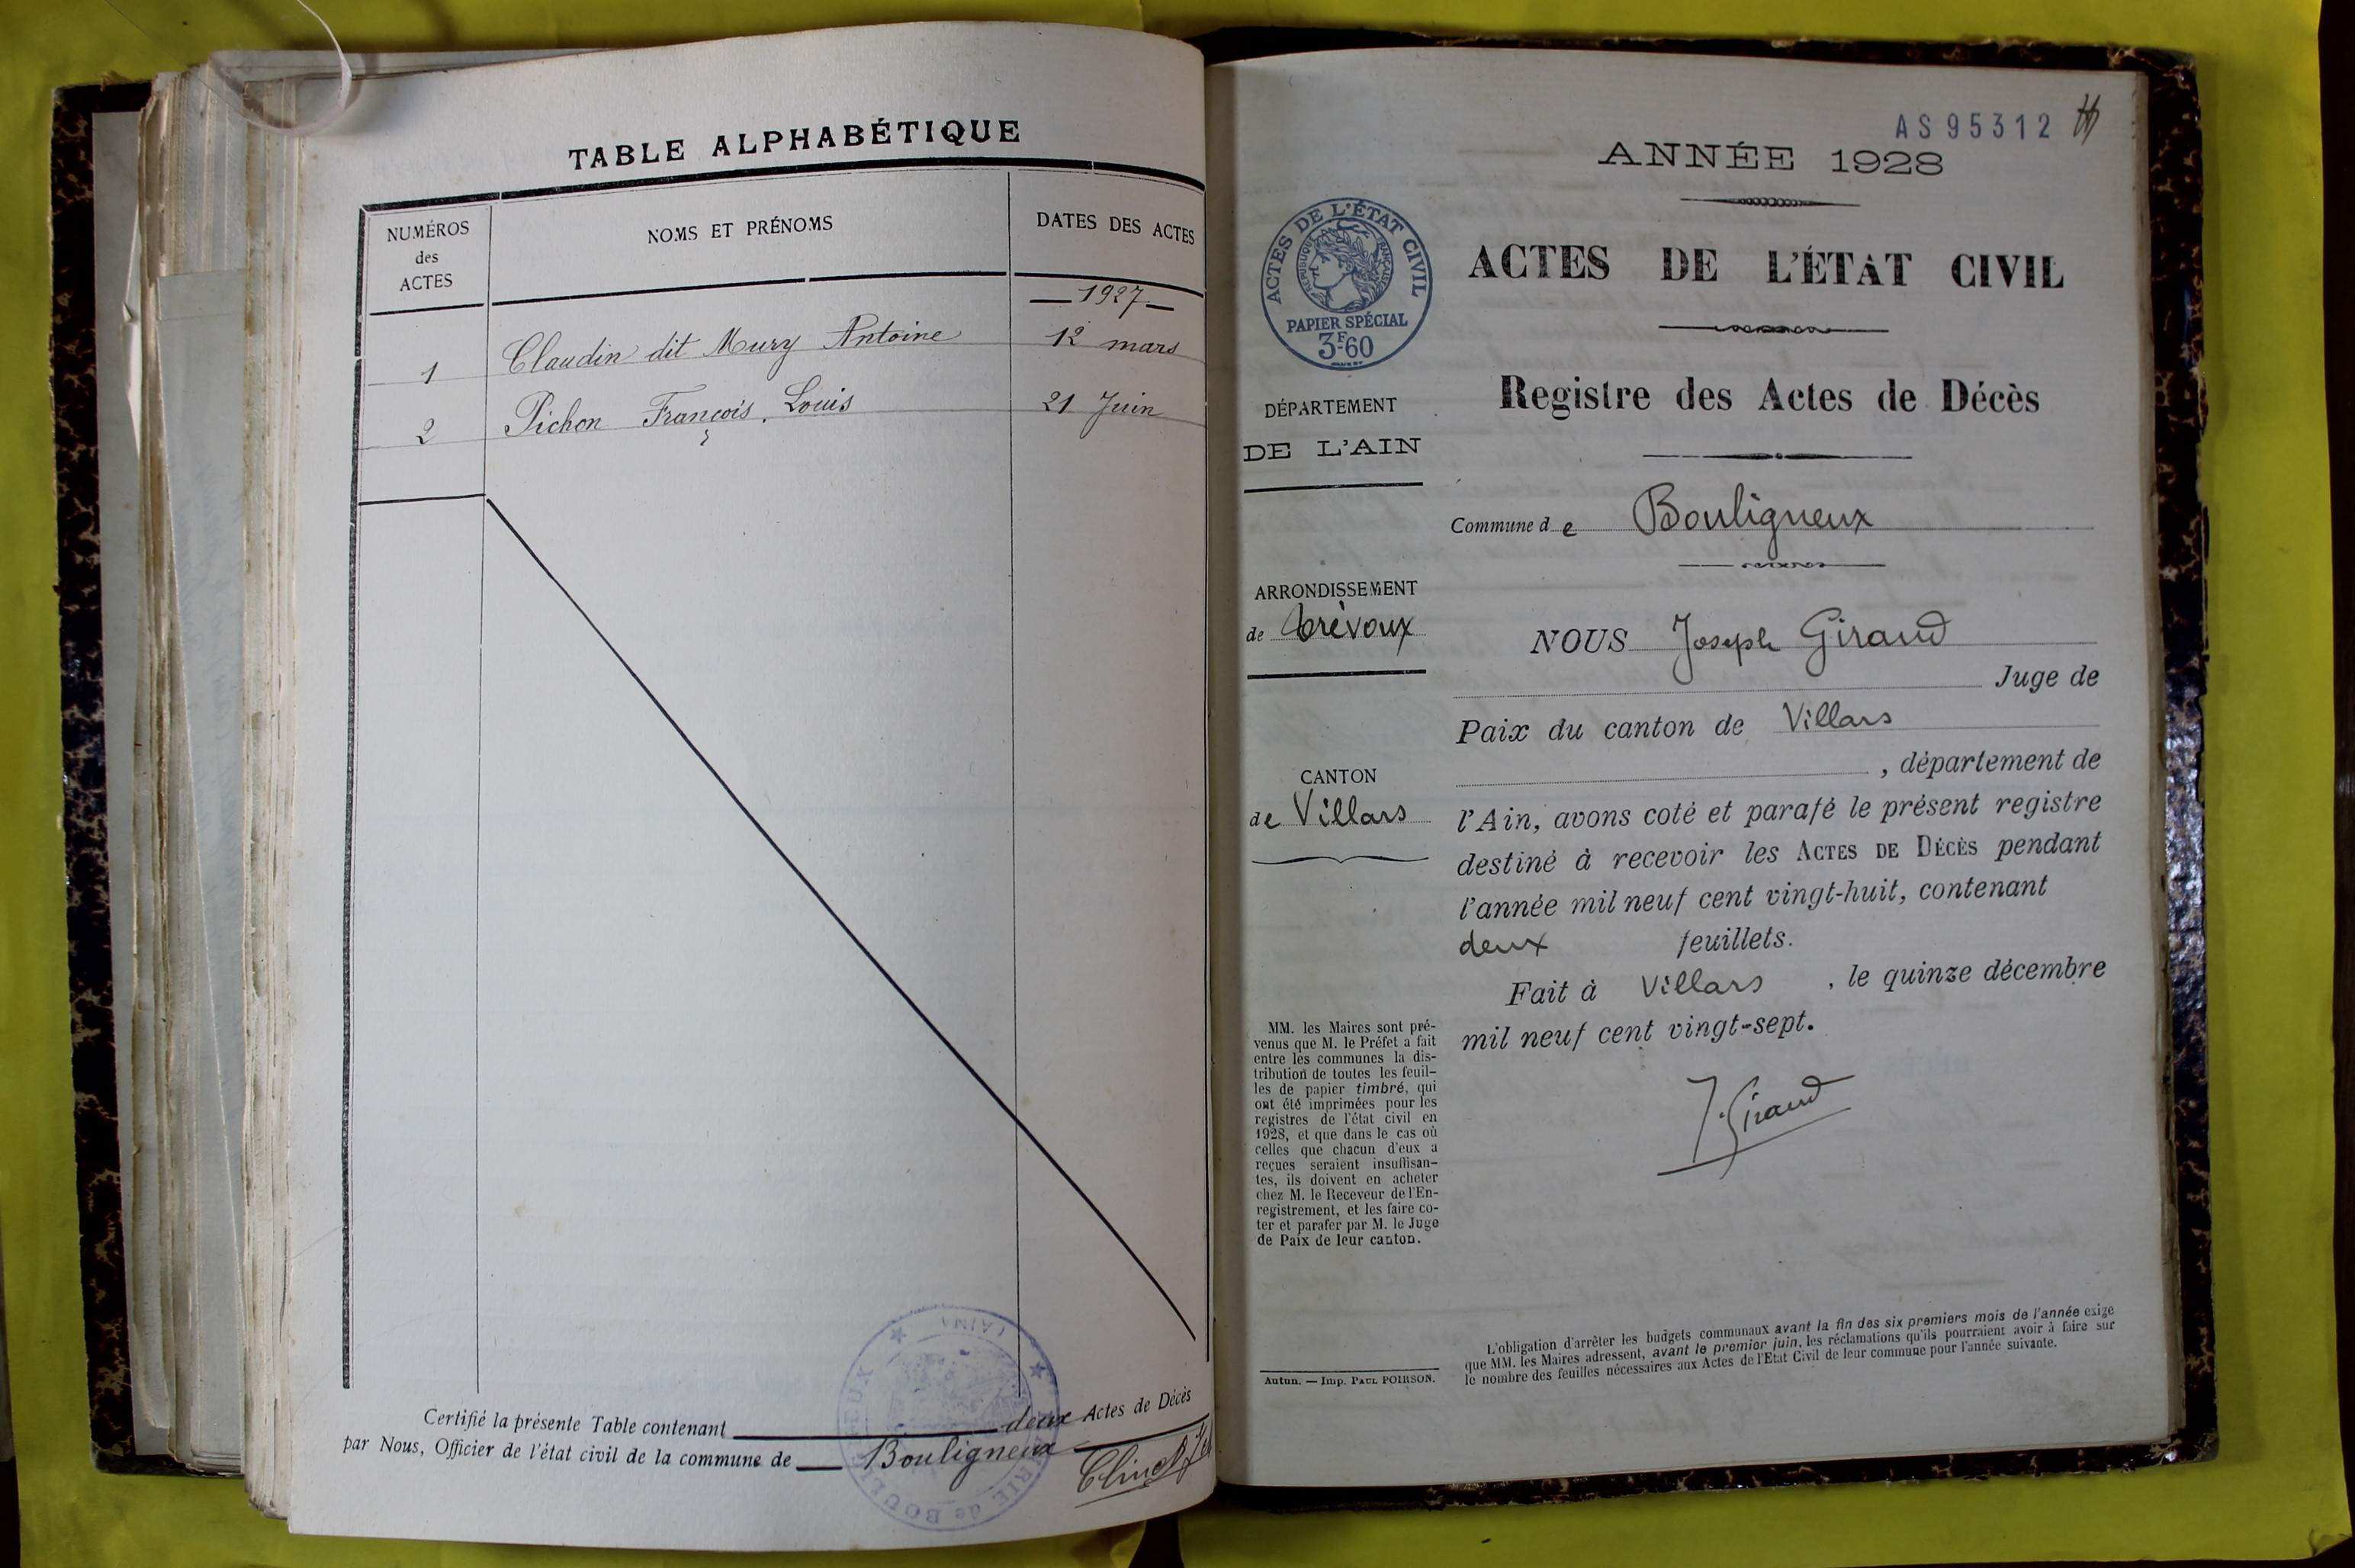 TABLE ALPHABÉTIQUE
NUMÉROS
des
ACTES
NOMS ET PRÉNOMS
DATES DES ACTES
1927
1 Claudin dit Mury Antoine 12 mars
2 Pichon François, Louis 21 Juin
Certifié la présente Table contenant deux Actes de Décès
par Nous, Officier de l'état civil de la commune de Bouligneux
AS 95312
ANNÉE 1928
ACTES DE L'ÉTAT CIVIL
RÉPUBLIQUE FRANÇAISE
PAPIER SPÉCIAL
3F60
ACTES DE L'ÉTAT CIVIL
Registre des Actes de Décès
DÉPARTEMENT
DE L'AIN
Commune de Bouligneux
ARRONDISSEMENT
de Trévoux
CANTON
de Villars
NOUS Joseph Giraud
Juge de
Paix du canton de Villars
, département de
l'Ain, avons coté et parafé le présent registre
destiné à recevoir les ACTES DE DÉCÈS pendant
l'année mil neuf cent vingt-huit, contenant
deux feuillets.
Fait à Villars, le quinze décembre
mil neuf cent vingt-sept.
J. Giraud
MM. les Maires sont pré-
venus que M. le Préfet a fait
entre les communes la dis-
tribution de toutes les feuil-
les de papier timbré, qui
ont été imprimées pour les
registres de l'état civil en
1928, et que dans le cas où
celles que chacun d'eux a
reçues seraient insuffisan-
tes, ils doivent en acheter
chez M. le Receveur de l'En-
registrement, et les faire co-
ter et parafer par M. le Juge
de Paix de leur canton.
Autun. — Imp. PAUL POIRSON.
L'obligation d'arrêter les budgets communaux avant la fin des six premiers mois de l'année exige
que MM. les Maires adressent, avant le premier juin, les réclamations qu'ils pourraient avoir à faire sur
le nombre des feuilles nécessaires aux Actes de l'Etat Civil de leur commune pour l'année suivante.